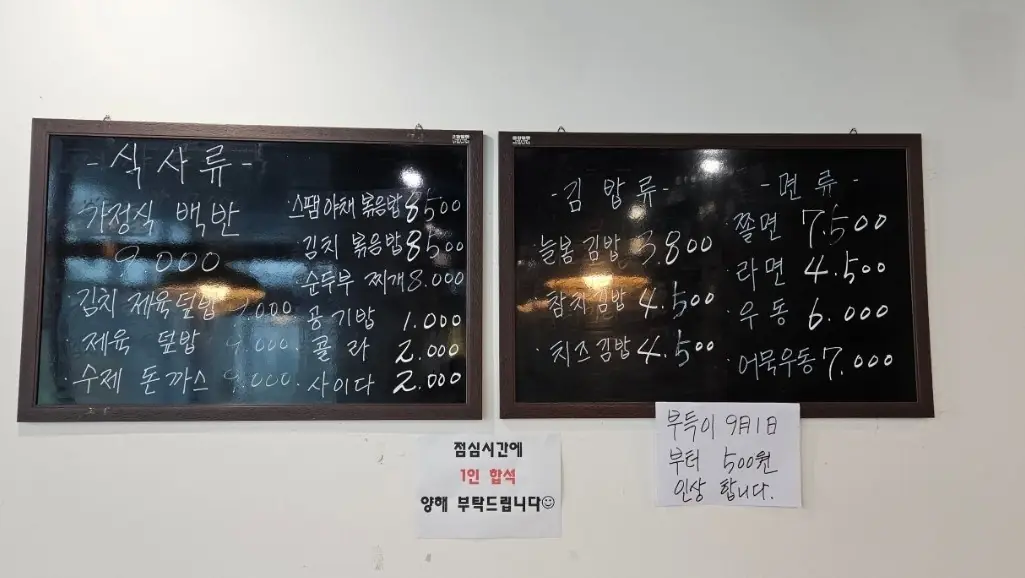 - 식사류 -
가정식 백반
9.000
김치 제육덮밥 9.000
제육 덮밥 9.000
수제 돈까스 9.000
스팸야채 볶음밥 8500
김치 볶음밥 8500
순두부 찌개 8.000
공기밥 1.000
콜라 2.000
사이다 2.000
- 김밥류 -
늘봄김밥 3.800
참치김밥 4.500
치즈김밥 4.500
- 면류 -
쫄면 7.500
라면 4.500
우동 6.000
어묵우동 7.000
점심시간에
1인 합석
양해 부탁드립니다☺
부득이 9月1日
부터 500원
인상 합니다.